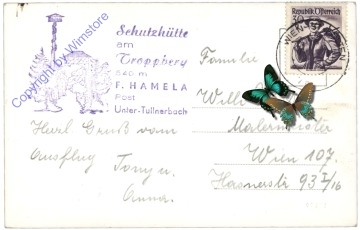 Copyright by Wimstore
Schutzhütte
am
Troppberg
540 m
F. HAMELA
Post
Unter-Tullnerbach
Herzl. Gruß vom
Ausflug Tony u.
Anna.
Republik Österreich
WIEN
Familie
Willi
Malermeister
Wien 107.
Hasnerstr 93 I/16